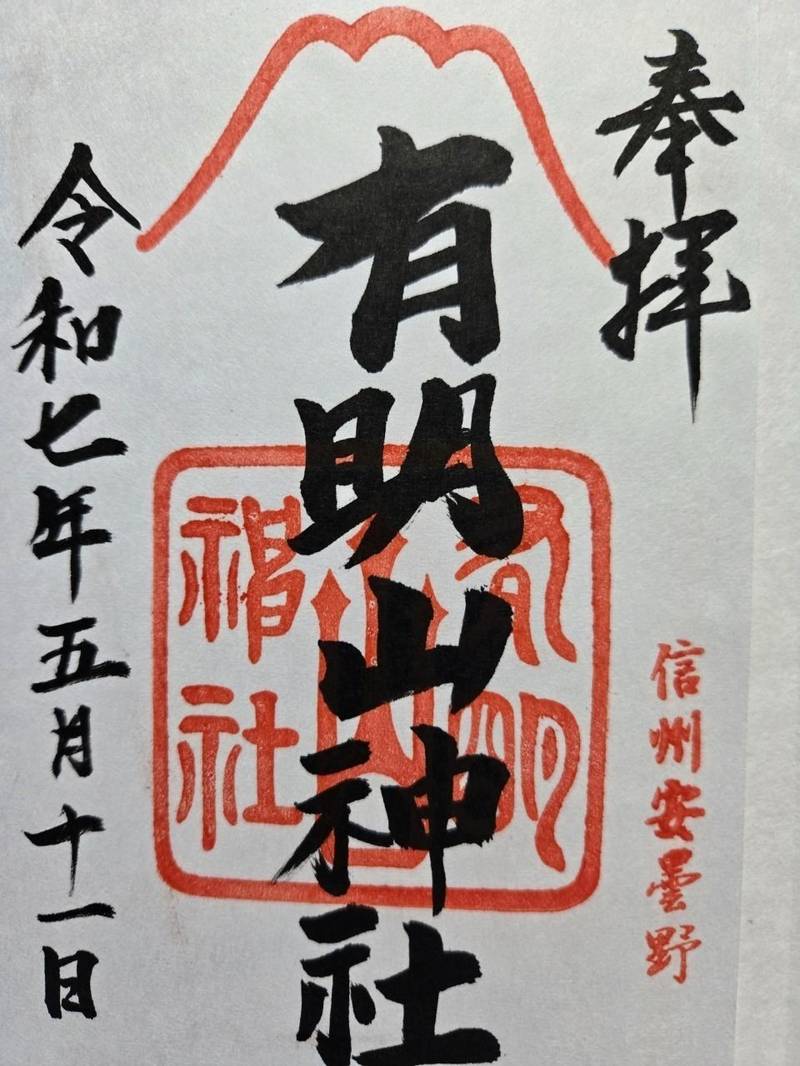 奉拝
信州安曇野
有明山神社
有明山神社
令和七年五月十一日